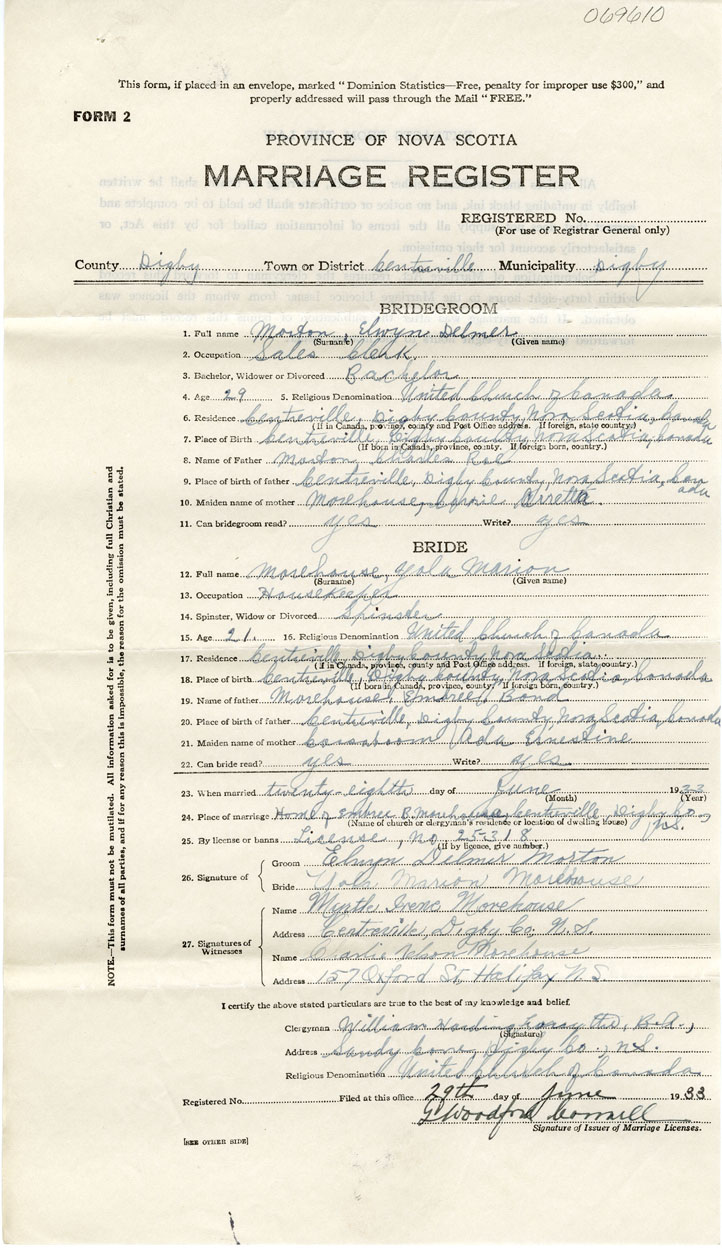 069610
This form, if placed in an envelope, marked "Dominion Statistics—Free, penalty for improper use $300," and
properly addressed will pass through the Mail "FREE."
FORM 2
PROVINCE OF NOVA SCOTIA
MARRIAGE REGISTER
REGISTERED No.
(For use of Registrar General only)
County Digby Town or District Centreville Municipality Digby
BRIDEGROOM
1. Full name Morton, Elwyn Delmer
(Surname) (Given name)
2. Occupation Sales Clerk.
3. Bachelor, Widower or Divorced Bachelor
4. Age 29 5. Religious Denomination United Church of Canada.
6. Residence Centreville, Digby County, Nova Scotia, Canada
(If in Canada, province, county and Post Office address. If foreign, state country.)
7. Place of Birth Centreville, Digby County Nova Scotia, Canada
(If born in Canada, province, county. If foreign born, country.)
8. Name of Father Morton Charles
9. Place of birth of father Centreville, Digby County, Nova Scotia, Canada
10. Maiden name of mother Morehouse,
11. Can bridegroom read? yes Write? yes
BRIDE
12. Full name Morehouse, Yola Marion
(Surname) (Given name)
13. Occupation Housekeeper
14. Spinster, Widow or Divorced Spinster
15. Age 21. 16. Religious Denomination United Church of Canada.
17. Residence Centreville Digby County Nova Scotia.
(If in Canada, province, county and Post Office address. If foreign, state country.)
18. Place of birth Centreville, Digby County, Nova Scotia, Canada
(If born in Canada, province, county. If foreign born, country.)
19. Name of father Morehouse, Embree Bond
20. Place of birth of father Centreville, Digby County Nova Scotia, Canada
21. Maiden name of mother Cossaboom, Ada Ernestine
22. Can bride read? yes Write? yes.
23. When married twenty-eighth day of June 1933
(Month) (Year)
24. Place of marriage Home of Embree B. Morehouse, Centreville, Digby Co., N.S.
(Name of church or clergyman's residence or location of dwelling house)
25. By license or banns License, no 25318
(If by licence, give number.)
26. Signature of
Groom Elwyn Delmer Morton
Bride Yola Marion Morehouse
27. Signatures of Witnesses
Name Myrtle Irene Morehouse
Address Centreville, Digby Co. N.S.
Name Morehouse
Address 157 Oxford St, Halifax N.S.
I certify the above stated particulars are true to the best of my knowledge and belief.
Clergyman William Harding B.A.,
(Signature)
Address Sandy Cove, Digby Co., N.S.
Religious Denomination United Church of Canada
Registered No. Filed at this office 29th day of June 1933
G Woodford Connell
Signature of Issuer of Marriage Licenses.
[SEE OTHER SIDE]
NOTE.—This form must not be mutilated. All information asked for is to be given, including full Christian and
surnames of all parties, and if for any reason this is impossible, the reason for the omission must be stated.